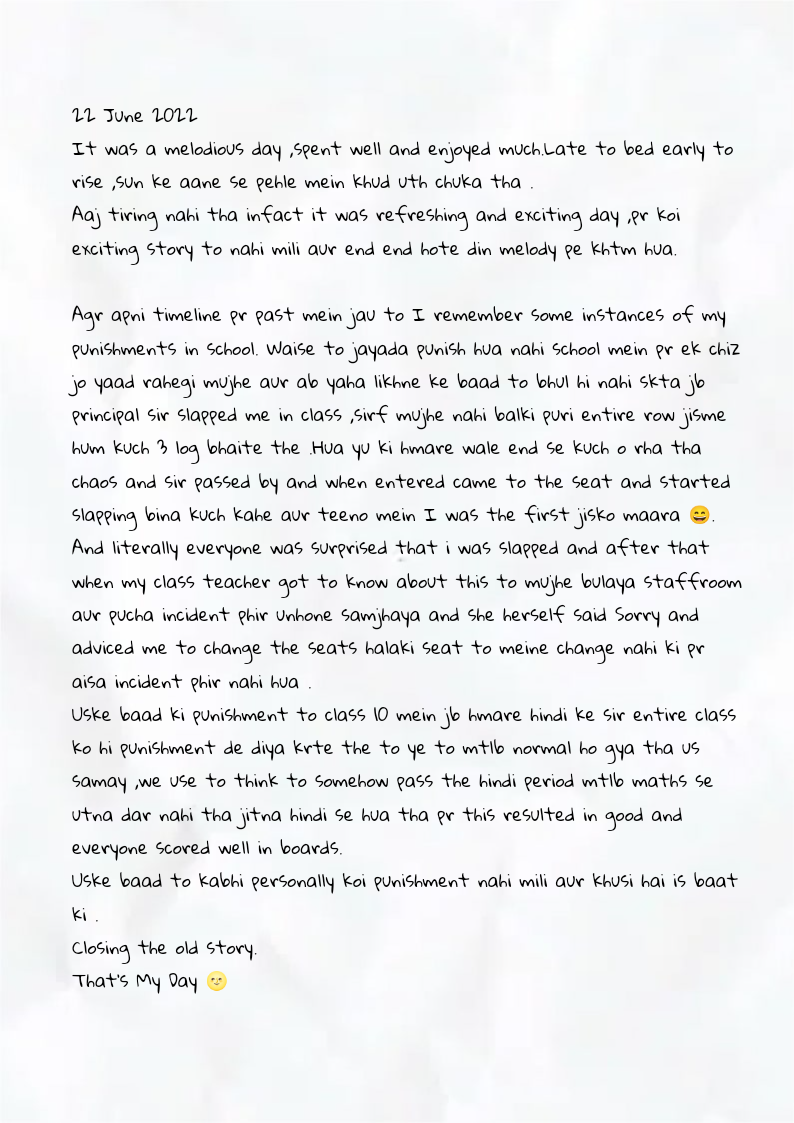 22 June 2022
It was a melodious day ,spent well and enjoyed much.Late to bed early to
rise ,sun ke aane se pehle mein khud uth chuka tha .
Aaj tiring nahi tha infact it was refreshing and exciting day ,pr koi
exciting story to nahi mili aur end end hote din melody pe khtm hua.

Agr apni timeline pr past mein jau to I remember some instances of my
punishments in school. Waise to jayada punish hua nahi school mein pr ek chiz
jo yaad rahegi mujhe aur ab yaha likhne ke baad to bhul hi nahi skta jb
principal sir slapped me in class ,sirf mujhe nahi balki puri entire row jisme
hum kuch 3 log bhaite the .Hua yu ki hmare wale end se kuch o rha tha
chaos and sir passed by and when entered came to the seat and started
slapping bina kuch kahe aur teeno mein I was the first jisko maara 😄.
And literally everyone was surprised that i was slapped and after that
when my class teacher got to know about this to mujhe bulaya staffroom
aur pucha incident phir unhone samjhaya and she herself said Sorry and
adviced me to change the seats halaki seat to meine change nahi ki pr
aisa incident phir nahi hua .
Uske baad ki punishment to class 10 mein jb hmare hindi ke sir entire class
ko hi punishment de diya krte the to ye to mtlb normal ho gya tha us
samay ,we use to think to somehow pass the hindi period mtlb maths se
utna dar nahi tha jitna hindi se hua tha pr this resulted in good and
everyone scored well in boards.
Uske baad to kabhi personally koi punishment nahi mili aur khusi hai is baat
ki .
Closing the old story.
That's My Day 🌝